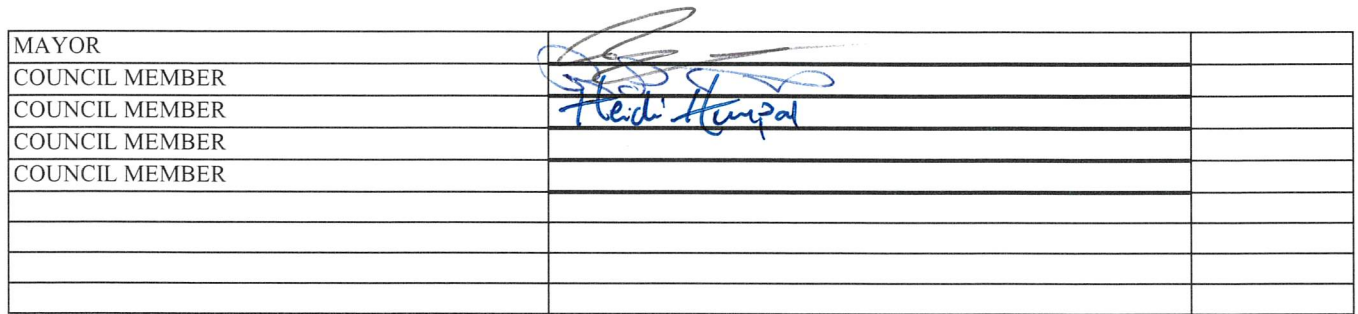 MAYOR
COUNCIL MEMBER
COUNCIL MEMBER Heidi
COUNCIL MEMBER
COUNCIL MEMBER